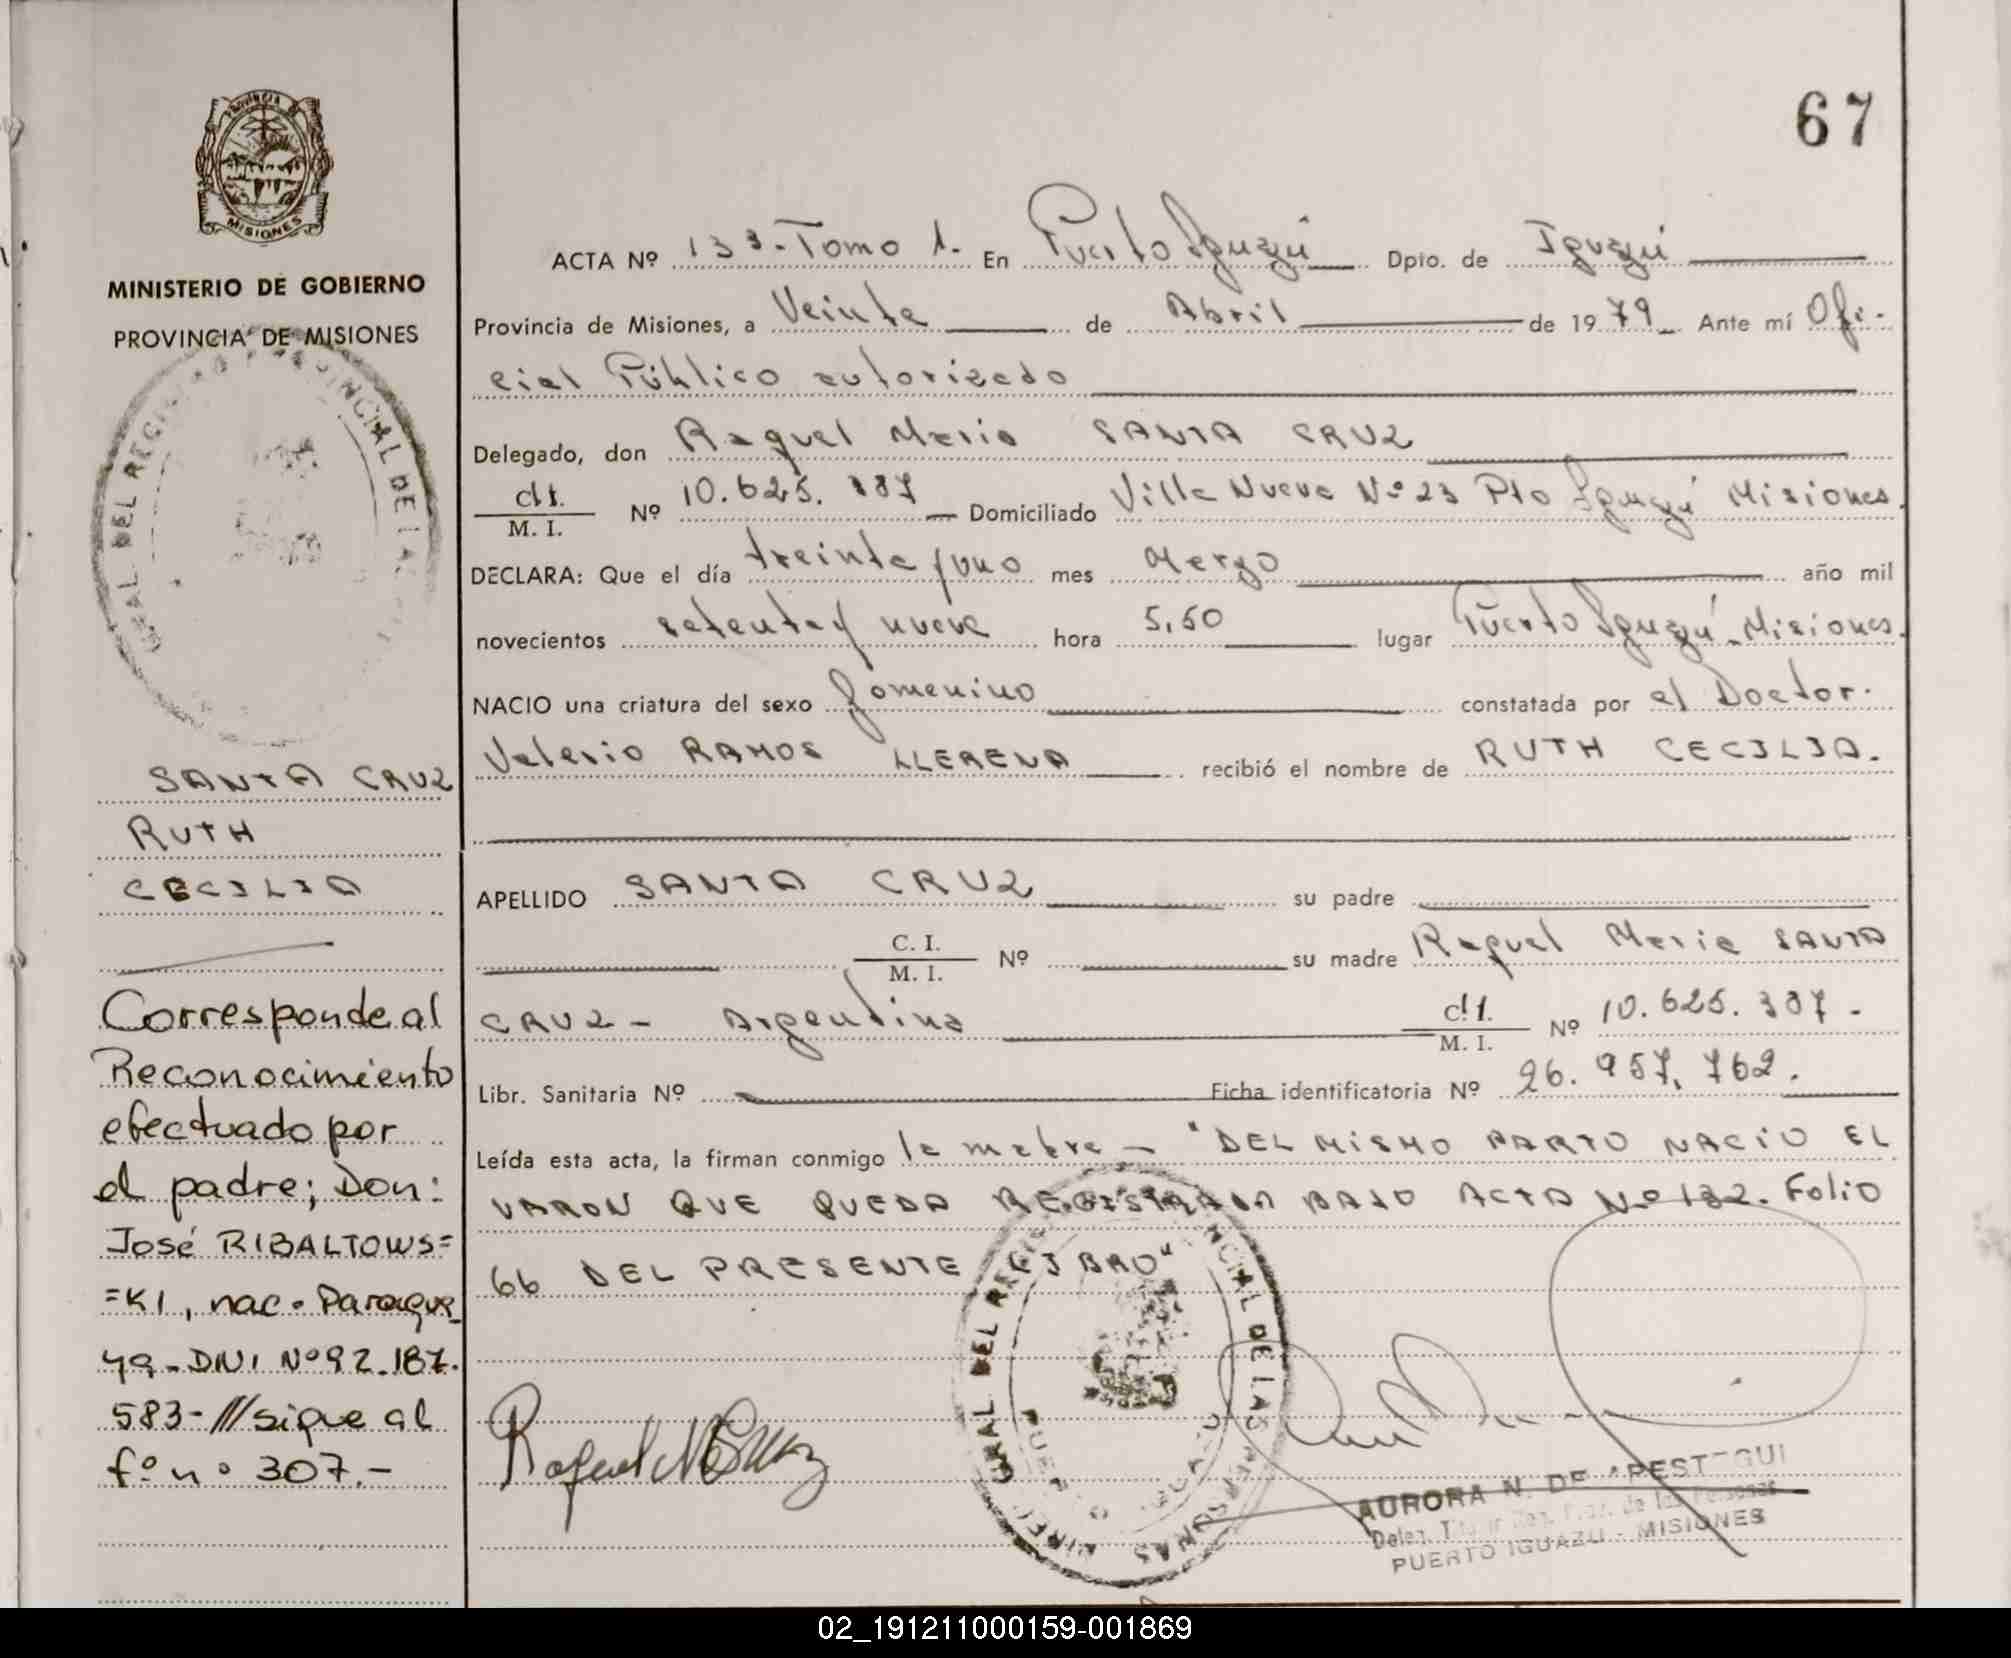 67
PROVINCIA DE
MISIONES
MINISTERIO DE GOBIERNO
PROVINCIA DE MISIONES
SANTA CRUZ
RUTH
CECILIA
Corresponde al
Reconocimiento
efectuado por
el padre; Don:
José RIBALTOWS=
=KI, nac. Paragua_
ya - DNI Nº 92.187.
583- /// sigue al
fº nº 307.-
ACTA Nº 133 - Tomo 1. En Puerto Iguazú Dpto. de Iguazú
Provincia de Misiones, a Veinte de Abril de 1979 Ante mí Ofi-
cial Público autorizado
Delegado, don Raquel Maria SANTA CRUZ
C. I.
M. I. Nº 10.625.387 Domiciliado Villa Nueva Nº 23 Pto Iguazú Misiones.
DECLARA: Que el día treinta y uno mes Marzo año mil
novecientos setenta y nueve hora 5,50 lugar Puerto Iguazú - Misiones.
NACIO una criatura del sexo femenino constatada por el Doctor.
Valerio RAMOS LLERENA recibió el nombre de RUTH CECILIA.
APELLIDO SANTA CRUZ su padre
C. I.
M. I. Nº su madre Raquel Maria SANTA
CRUZ - Argentina C. I.
M. I. Nº 10.625.387.-
Libr. Sanitaria Nº Ficha identificatoria Nº 26.957.762.
Leída esta acta, la firman conmigo la madre - "DEL MISMO PARTO NACIO EL
VARON QUE QUEDA REGISTRADA BAJO ACTA Nº 132. Folio
66 DEL PRESENTE LIBRO"
GRAL DEL REGISTRO PROVINCIAL DE LAS PERSONAS
AURORA N. DE
PUERTO IGUAZU - MISIONES
02_191211000159-001869